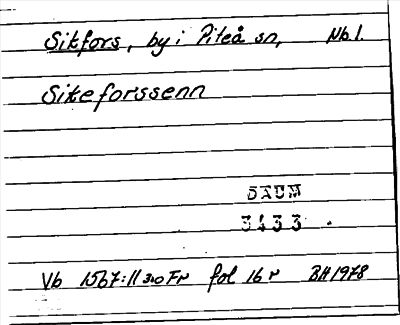 Sikfors, by i Piteå sn, Nb.l.
Sikeforssenn
DAUM
3433
Vb 1567:11 fol 16 r BH 1978